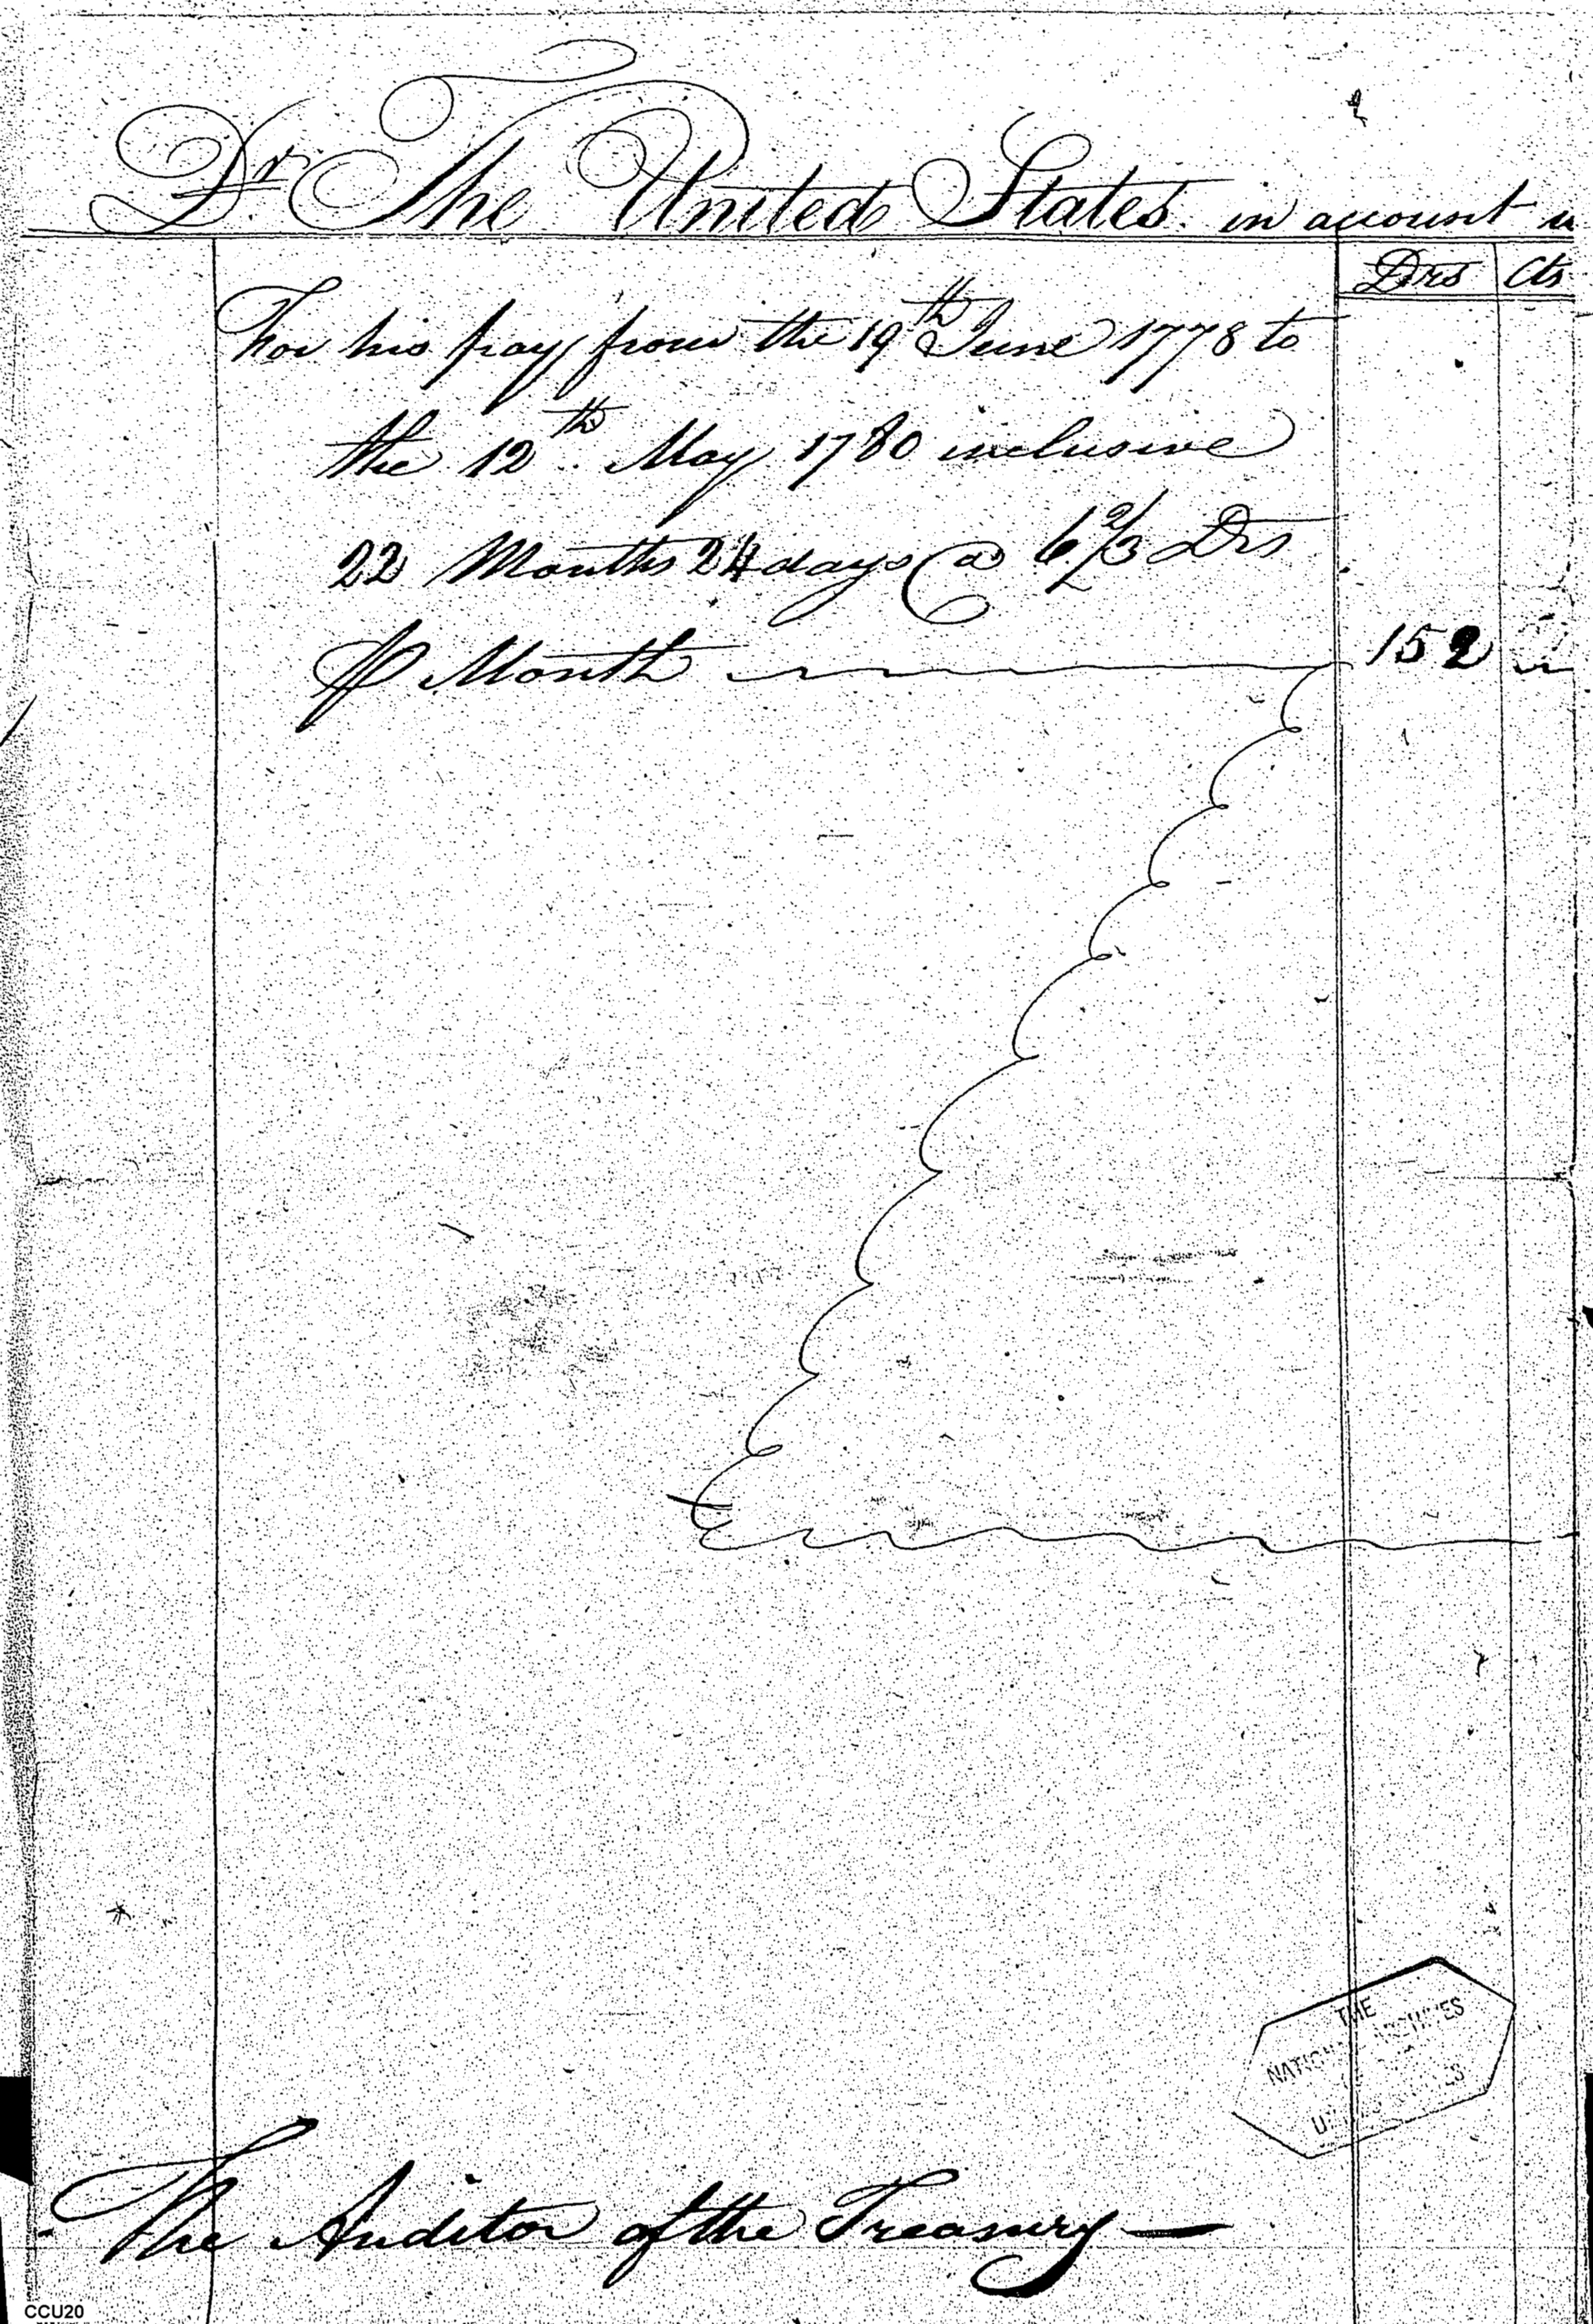 Dr. The United States in account
Drs Cts
For his pay from the 19th June 1778 to
the 12th May 1780 inclusive
22 Months 24 days @ 6 2/3 Drs
⅌ Month 152
THE
NATIONAL ARCHIVES
UNITED STATES
The Auditor of the Treasury —
CCU20